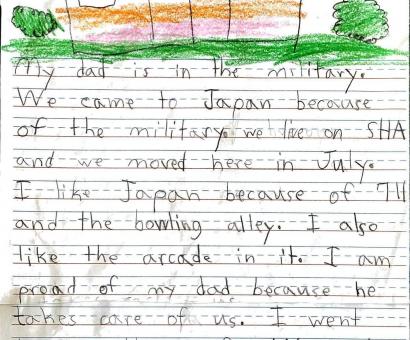 My dad is in the military.
We came to Japan because
of the military. we live on SHA
and we moved here in July.
I like Japan because of 711
and the bowling alley. I also
like the arcade in it. I am
proad of my dad because he
takes care of us. I went